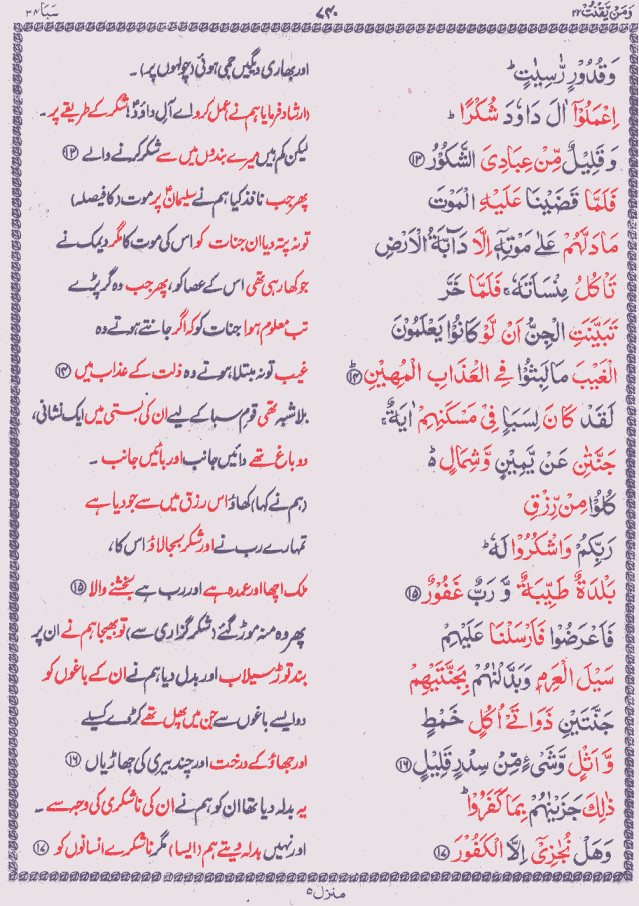 وَمَنْ يَّقْنُتْ ٢٢ ٧٣٠ سَبَا ٣٤
وَقُدُوْرٍ رّٰسِيٰتٍ ؕ اور بھاری دیگیں جمی ہوئی (چولہوں پر) ۔
اِعْمَلُوْٓا اٰلَ دَاوٗدَ شُكْرًا ؕ (ارشاد فرمایا ہم نے) عمل کرو اے آلِ داؤد! شکر کے طریقے پر ۔
وَقَلِيْلٌ مِّنْ عِبَادِيَ الشَّكُوْرُ ۝١٣ لیکن کم ہیں میرے بندوں میں سے شکر کرنے والے ۝١٣
فَلَمَّا قَضَيْنَا عَلَيْهِ الْمَوْتَ پھر جب نافذ کیا ہم نے سلیمانؑ پر موت (کا فیصلہ)
مَا دَلَّهُمْ عَلٰى مَوْتِهٖٓ اِلَّا دَآبَّةُ الْاَرْضِ تو نہ پتہ دیا ان جنات کو اس کی موت کا مگر دیمک نے
تَاْكُلُ مِنْسَاَتَهٗ ۚ فَلَمَّا خَرَّ جو کھا رہی تھی اس کے عصا کو، پھر جب وہ گر پڑے
تَبَيَّنَتِ الْجِنُّ اَنْ لَّوْ كَانُوْا يَعْلَمُوْنَ تب معلوم ہوا جنات کو کہ اگر جانتے ہوتے وہ
الْغَيْبَ مَا لَبِثُوْا فِي الْعَذَابِ الْمُهِيْنِ ؕ ۝١٤ غیب تو نہ مبتلا ہوتے وہ ذلت کے عذاب میں ۝١٤
لَقَدْ كَانَ لِسَبَاٍ فِيْ مَسْكَنِهِمْ اٰيَةٌ ۚ بلاشبہ تھی قومِ سبا کے لیے ان کی بستی میں ایک نشانی،
جَنَّتٰنِ عَنْ يَّمِيْنٍ وَّشِمَالٍ ؕ دو باغ تھے دائیں جانب اور بائیں جانب ۔
كُلُوْا مِنْ رِّزْقِ (ہم نے کہا) کھاؤ اس رزق میں سے جو دیا ہے
رَبِّكُمْ وَاشْكُرُوْا لَهٗ ؕ تمہارے رب نے اور شکر بجا لاؤ اس کا،
بَلْدَةٌ طَيِّبَةٌ وَّرَبٌّ غَفُوْرٌ ۝١٥ ملک اچھا اور عمدہ ہے اور رب ہے بخشنے والا ۝١٥
فَاَعْرَضُوْا فَاَرْسَلْنَا عَلَيْهِمْ پھر وہ منہ موڑ گئے (شکر گزاری سے) تو بھیجا ہم نے ان پر
سَيْلَ الْعَرِمِ وَبَدَّلْنٰهُمْ بِجَنَّتَيْهِمْ بند توڑ سیلاب اور بدل دیا ہم نے ان کے باغوں کو
جَنَّتَيْنِ ذَوَاتَيْ اُكُلٍ خَمْطٍ دو ایسے باغوں سے جن میں پھل تھے کڑوے کسیلے
وَّاَثْلٍ وَّشَيْءٍ مِّنْ سِدْرٍ قَلِيْلٍ ۝١٦ اور جھاؤ کے درخت اور چند بیری کی جھاڑیاں ۝١٦
ذٰلِكَ جَزَيْنٰهُمْ بِمَا كَفَرُوْا ؕ یہ بدلہ دیا تھا ان کو ہم نے ان کی ناشکری کی وجہ سے ۔
وَهَلْ نُجٰزِيْٓ اِلَّا الْكَفُوْرَ ۝١٧ اور نہیں بدلہ دیتے ہم (ایسا) مگر ناشکرے انسانوں کو ۝١٧
منزل ٥